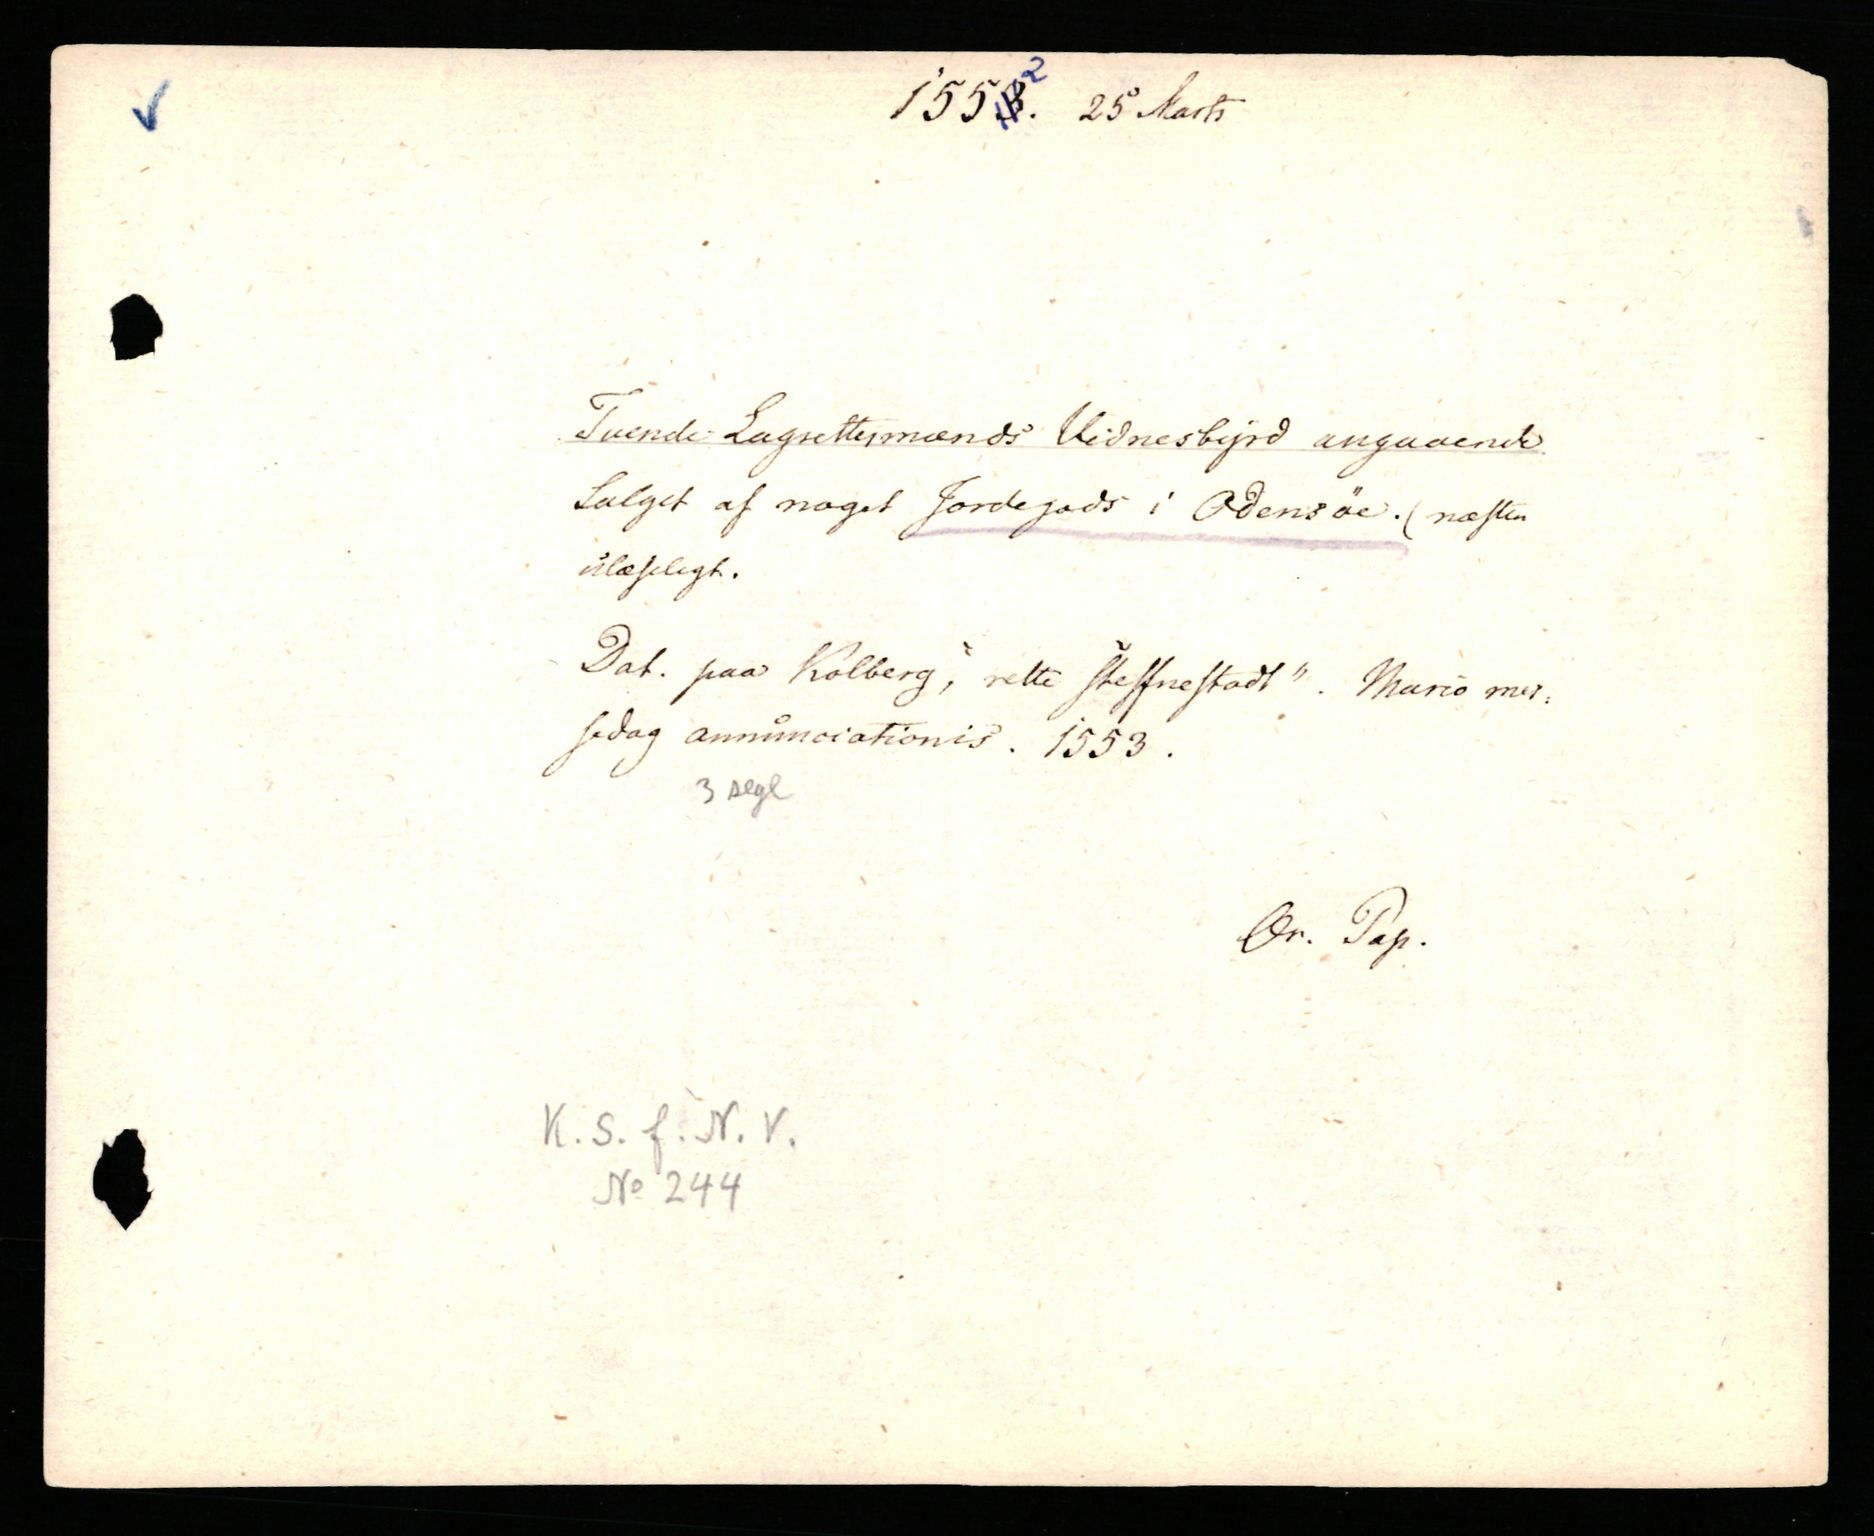 1553. 2 25 Marts
Tvende Lagrettesmænds Vidnesbyrd angaaende
Salget af noget Jordegods i Odensöe. (næsten
ulæseligt.
Dat. paa Kolberg, "rette steffnestadt". Mario mes-
sedag annunciationis. 1553.
3 segl
Or. Pap.
K. S. f. N. V.
No 244